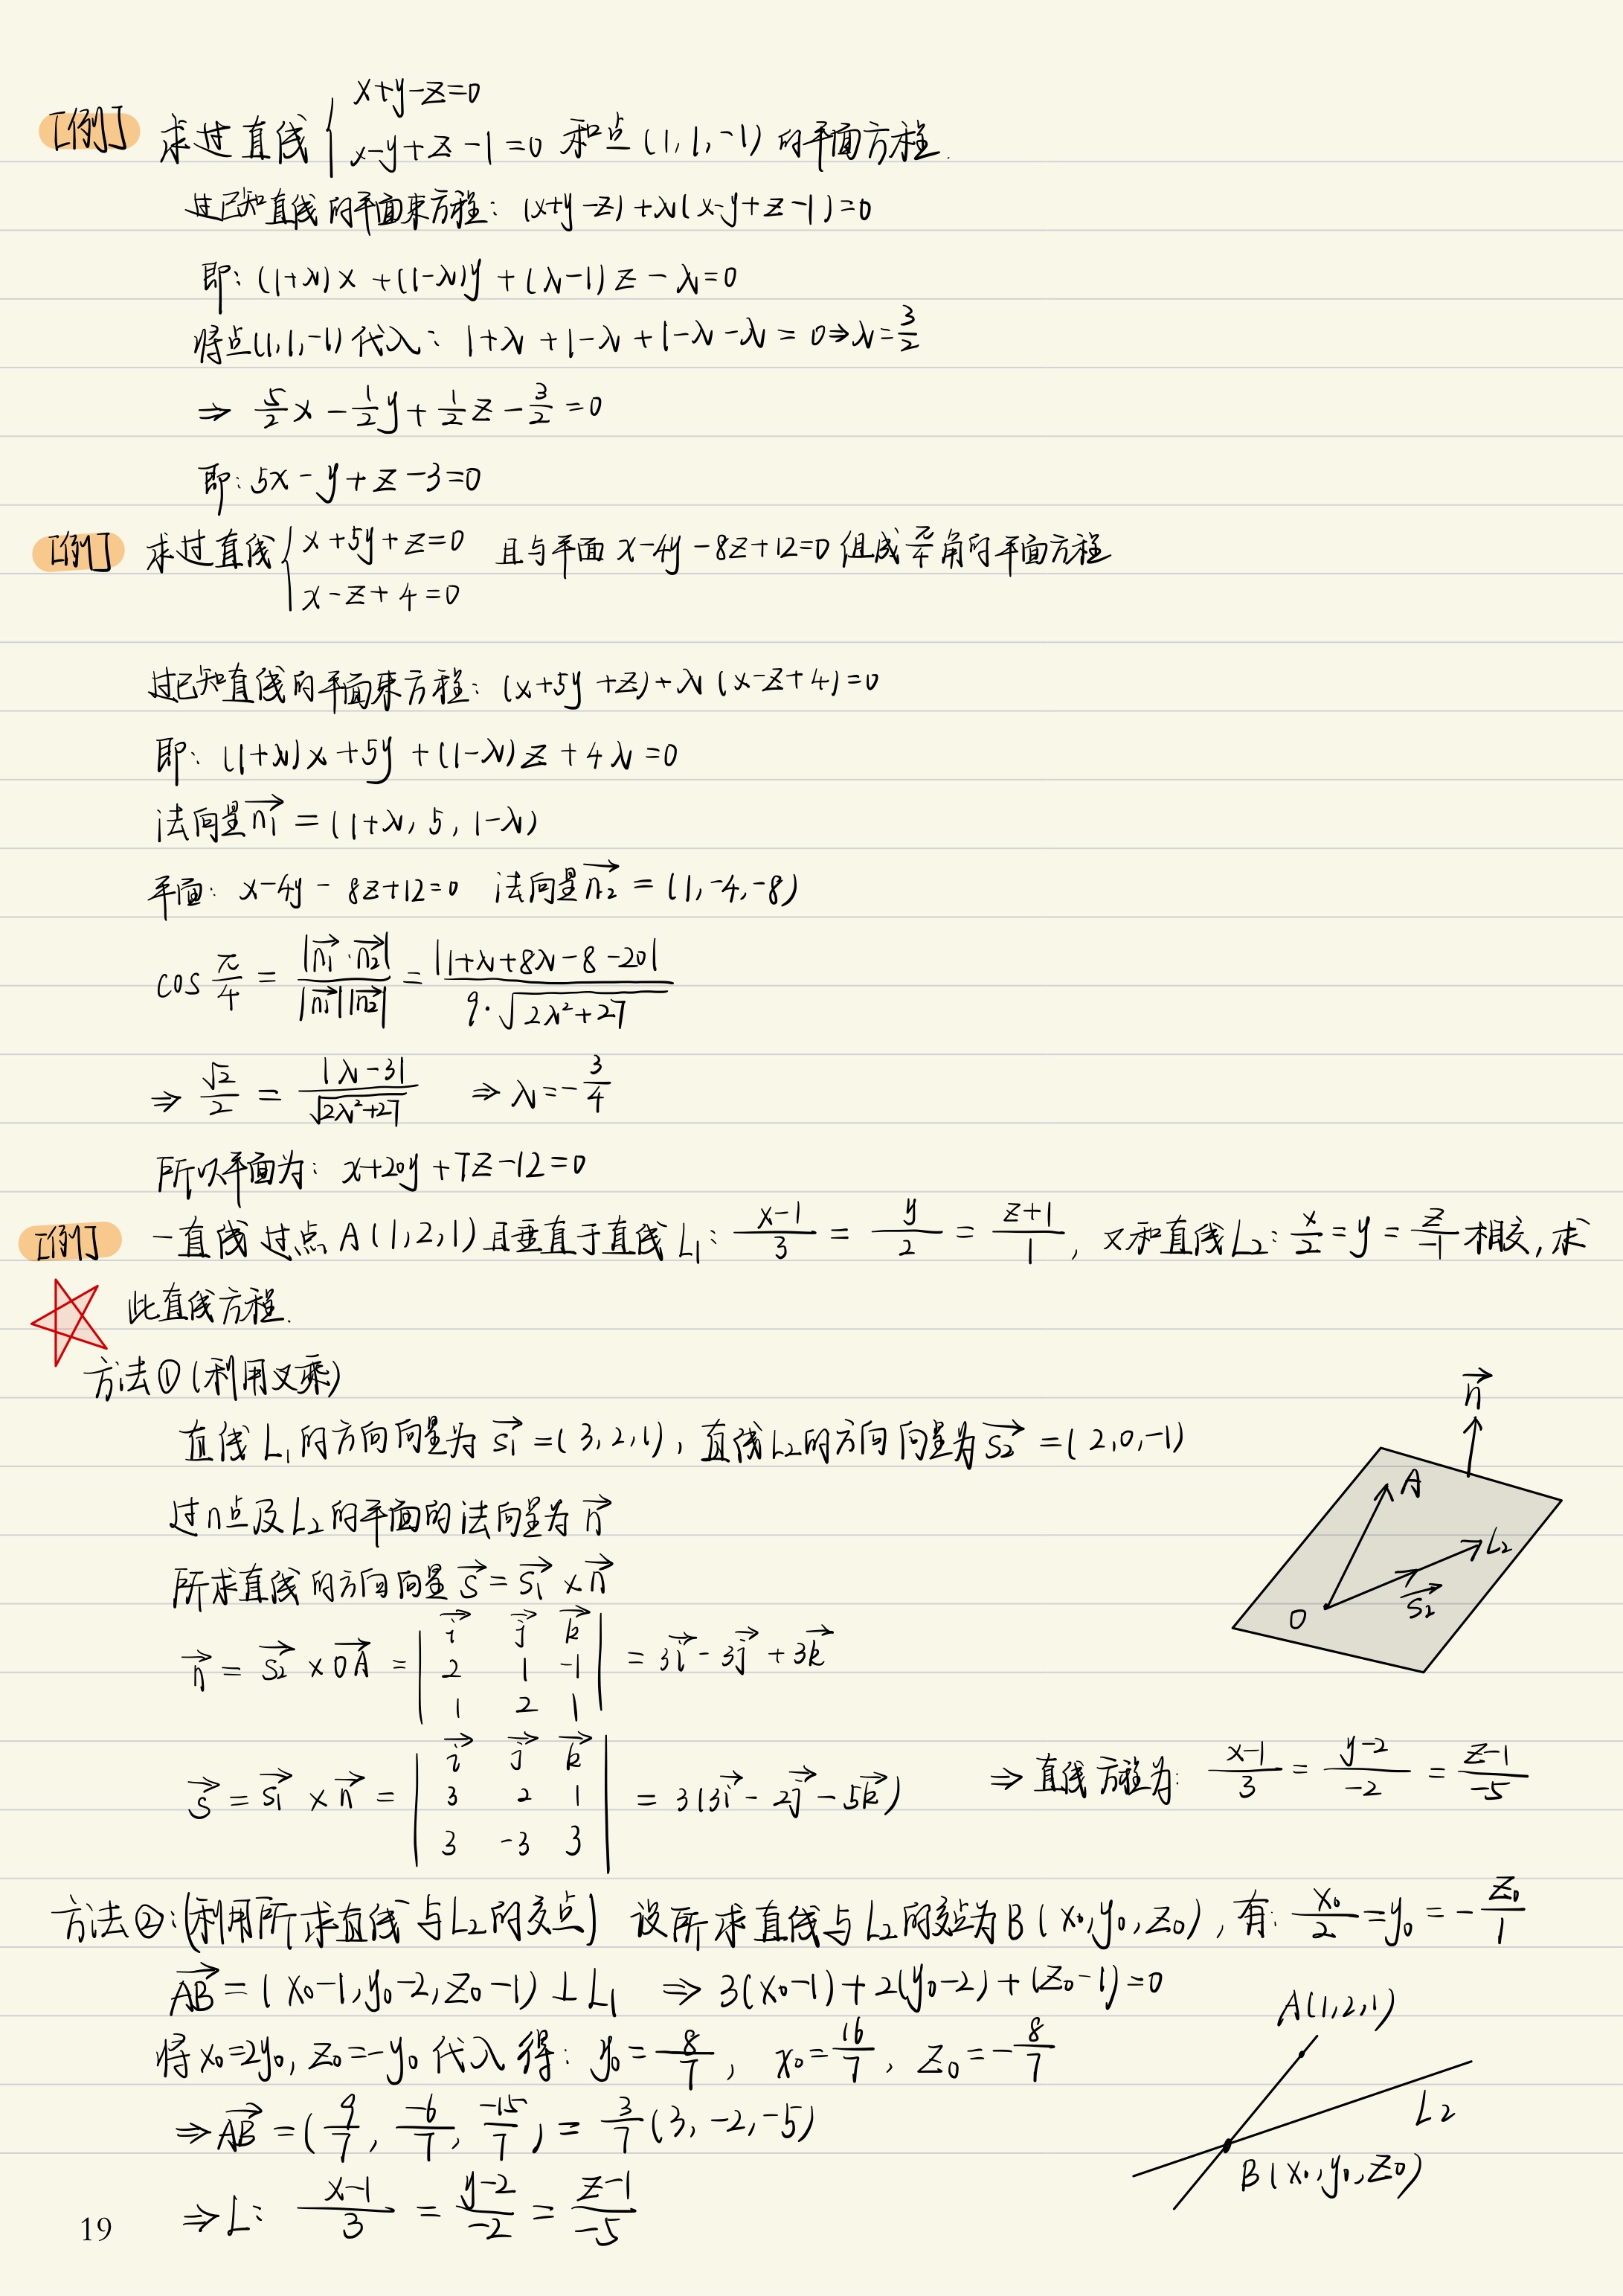 [例] 求过直线 { x+y-z=0
x-y+z-1=0 和点 (1,1,-1) 的平面方程.
过已知直线的平面束方程: (x+y-z)+λ(x-y+z-1)=0
即: (1+λ)x+(1-λ)y+(λ-1)z-λ=0
将点(1,1,-1)代入: 1+λ+1-λ+1-λ-λ=0⇒λ=3/2
⇒ 5/2x-1/2y+1/2z-3/2=0
即: 5x-y+z-3=0
[例] 求过直线 { x+5y+z=0 且与平面 x-4y-8z+12=0 组成 π/4 角的平面方程
x-z+4=0
过已知直线的平面束方程: (x+5y+z)+λ(x-z+4)=0
即: (1+λ)x+5y+(1-λ)z+4λ=0
法向量n₁→=(1+λ,5,1-λ)
平面: x-4y-8z+12=0 法向量n₂→=(1,-4,-8)
cos π/4 = |n₁→·n₂→|/|n₁→||n₂→| = |1+λ+8λ-8-20|/9·√(2λ²+27)
⇒ √2/2 = |λ-3|/√(2λ²+27) ⇒ λ=-3/4
所以平面为: x+20y+7z-12=0
[例] 一直线过点A(1,2,1)且垂直于直线L₁: (x-1)/3 = y/2 = (z+1)/1, 又和直线L₂: x/2=y=z/-1相交,求
此直线方程.
方法①(利用叉乘)
直线L₁的方向向量为 s₁→=(3,2,1), 直线L₂的方向向量为s₂→=(2,0,-1)
过n点及L₂的平面的法向量为 n→
所求直线的方向向量 s→=s₁→×n→
n→ = s₂→×OA→ = | i→ j→ k→ | = 3i→-3j→+3k→
2 1 -1
1 2 1
s→=s₁→×n→ = | i→ j→ k→ | = 3(3i→-2j→-5k→) ⇒ 直线方程为: (x-1)/3 = (y-2)/-2 = (z-1)/-5
3 2 1
3 -3 3
n→
A
L₂
s₂→
O
方法②:(利用所求直线与L₂的交点) 设所求直线与L₂的交点为B(x₀,y₀,z₀), 有: x₀/2=y₀=-z₀/1
AB→=(x₀-1,y₀-2,z₀-1)⊥L₁ ⇒ 3(x₀-1)+2(y₀-2)+(z₀-1)=0
将x₀=2y₀, z₀=-y₀代入得: y₀=8/7, x₀=16/7, z₀=-8/7
⇒AB→=(9/7, -6/7, -15/7)=3/7(3,-2,-5)
⇒L: (x-1)/3 = (y-2)/-2 = (z-1)/-5
A(1,2,1)
L₂
B(x₀,y₀,z₀)
19